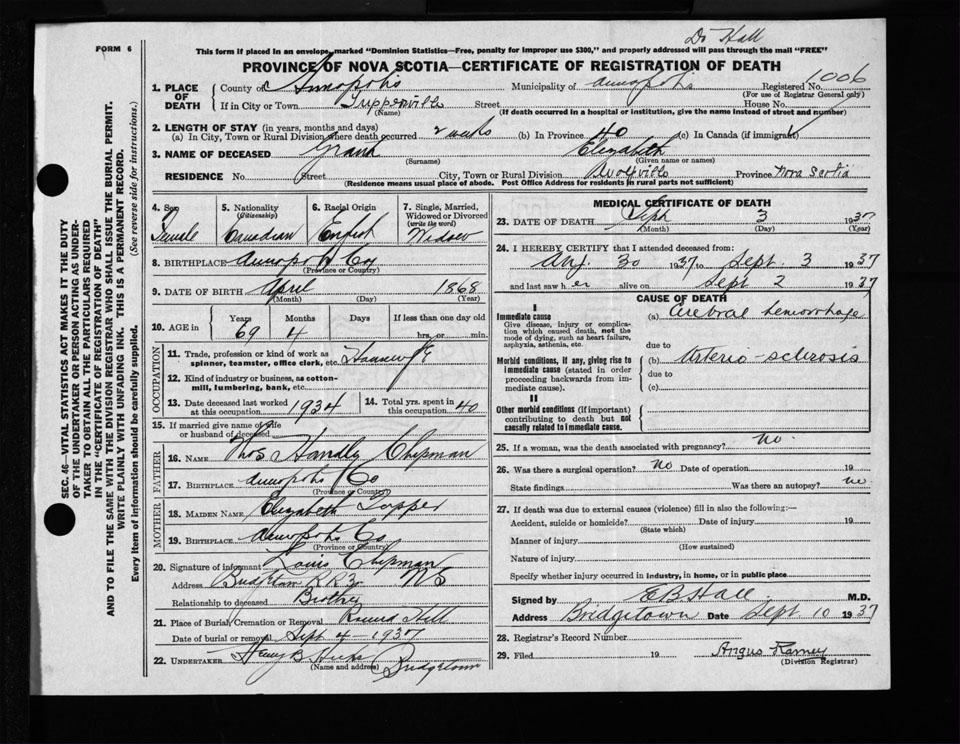 Dr Hall
FORM 6
This form if placed in an envelope, marked "Dominion Statistics—Free, penalty for improper use $300," and properly addressed will pass through the mail "FREE"
PROVINCE OF NOVA SCOTIA—CERTIFICATE OF REGISTRATION OF DEATH
1. PLACE OF DEATH County of Annapolis Municipality of Annapolis Registered No. 1006
(For use of Registrar General only)
If in City or Town Tupperville Street House No.
(Name) (If death occurred in a hospital or institution, give the name instead of street and number)
2. LENGTH OF STAY (in years, months and days)
(a) In City, Town or Rural Division where death occurred 2 weeks (b) In Province 40 (c) In Canada (if immigrant)
3. NAME OF DECEASED Elizabeth
(Surname) (Given name or names)
RESIDENCE No. Street City, Town or Rural Division Wolfville Province Nova Scotia
(Residence means usual place of abode. Post Office Address for residents in rural parts not sufficient)
4. Sex 5. Nationality 6. Racial Origin 7. Single, Married,
(Citizenship) Widowed or Divorced
(write the word)
Female Canadian English Widow
8. BIRTHPLACE Annapolis Co
(Province or Country)
9. DATE OF BIRTH April 1868
(Month) (Day) (Year)
10. AGE in Years Months Days If less than one day old
69 4 hrs. or min.
OCCUPATION
11. Trade, profession or kind of work as
spinner, teamster, office clerk, etc.
12. Kind of industry or business, as cotton-
mill, lumbering, bank, etc.
13. Date deceased last worked
at this occupation 1934
14. Total yrs. spent in
this occupation 40
15. If married give name of wife
or husband of deceased
FATHER
16. NAME Thos Handly Chipman
17. BIRTHPLACE Annapolis Co
(Province or Country)
MOTHER
18. MAIDEN NAME Elizabeth Tupper
19. BIRTHPLACE Annapolis Co
(Province or Country)
20. Signature of informant Louis Chipman
Address Bridgetown R R 3 NS
Relationship to deceased Brother
21. Place of Burial, Cremation or Removal Round Hill
Date of burial or removal Sept 4 - 1937
22. UNDERTAKER Bridgetown
(Name and address)
MEDICAL CERTIFICATE OF DEATH
23. DATE OF DEATH Sept 3 1937
(Month) (Day) (Year)
24. I HEREBY CERTIFY that I attended deceased from:
Aug 30 1937 to Sept. 3 1937
and last saw her alive on Sept 2 1937
CAUSE OF DEATH
I
Immediate cause
Give disease, injury or complica-
tion which caused death, not the
mode of dying, such as heart failure,
asphyxia, asthenia, etc.
(a) Cerebral hemorrhage
due to
Morbid conditions, if any, giving rise to
immediate cause (stated in order
proceeding backwards from im-
mediate cause).
(b) Arterio-sclerosis
due to
(c)
II
Other morbid conditions (if important)
contributing to death but not
causally related to immediate cause.
25. If a woman, was the death associated with pregnancy? no.
26. Was there a surgical operation? No Date of operation 19
State findings Was there an autopsy? no
27. If death was due to external causes (violence) fill in also the following:—
Accident, suicide or homicide? Date of injury 19
(State which)
Manner of injury
(How sustained)
Nature of injury
Specify whether injury occurred in industry, in home, or in public place
Signed by E B Hall M.D.
Address Bridgetown Date Sept 10 1937
28. Registrar's Record Number
29. Filed 19 Angus Ramey
(Division Registrar)
SEC. 46—VITAL STATISTICS ACT MAKES IT THE DUTY
OF THE UNDERTAKER OR PERSON ACTING AS UNDER-
TAKER TO OBTAIN ALL THE PARTICULARS REQUIRED
IN THE "CERTIFICATE OF REGISTRATION OF DEATH"
AND TO FILE THE SAME WITH THE DIVISION REGISTRAR WHO SHALL ISSUE THE BURIAL PERMIT.
WRITE PLAINLY WITH UNFADING INK. THIS IS A PERMANENT RECORD.
Every item of information should be carefully supplied. (See reverse side for instructions.)